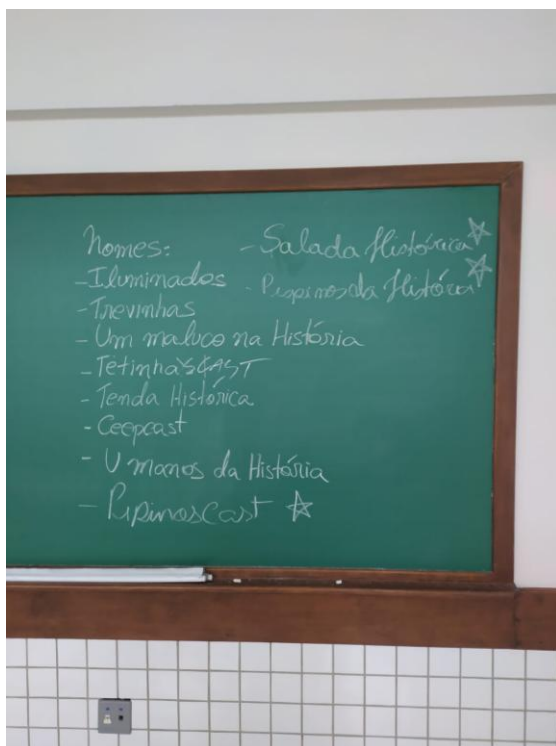 Nomes:
- Iluminados
- Trevinhas
- Um maluco na História
- Tetinha'sCAST
- Tenda Histórica
- Ceepcast
- U manos da História
- PipinosCast
- Salada Histórica
- Pipinos da História